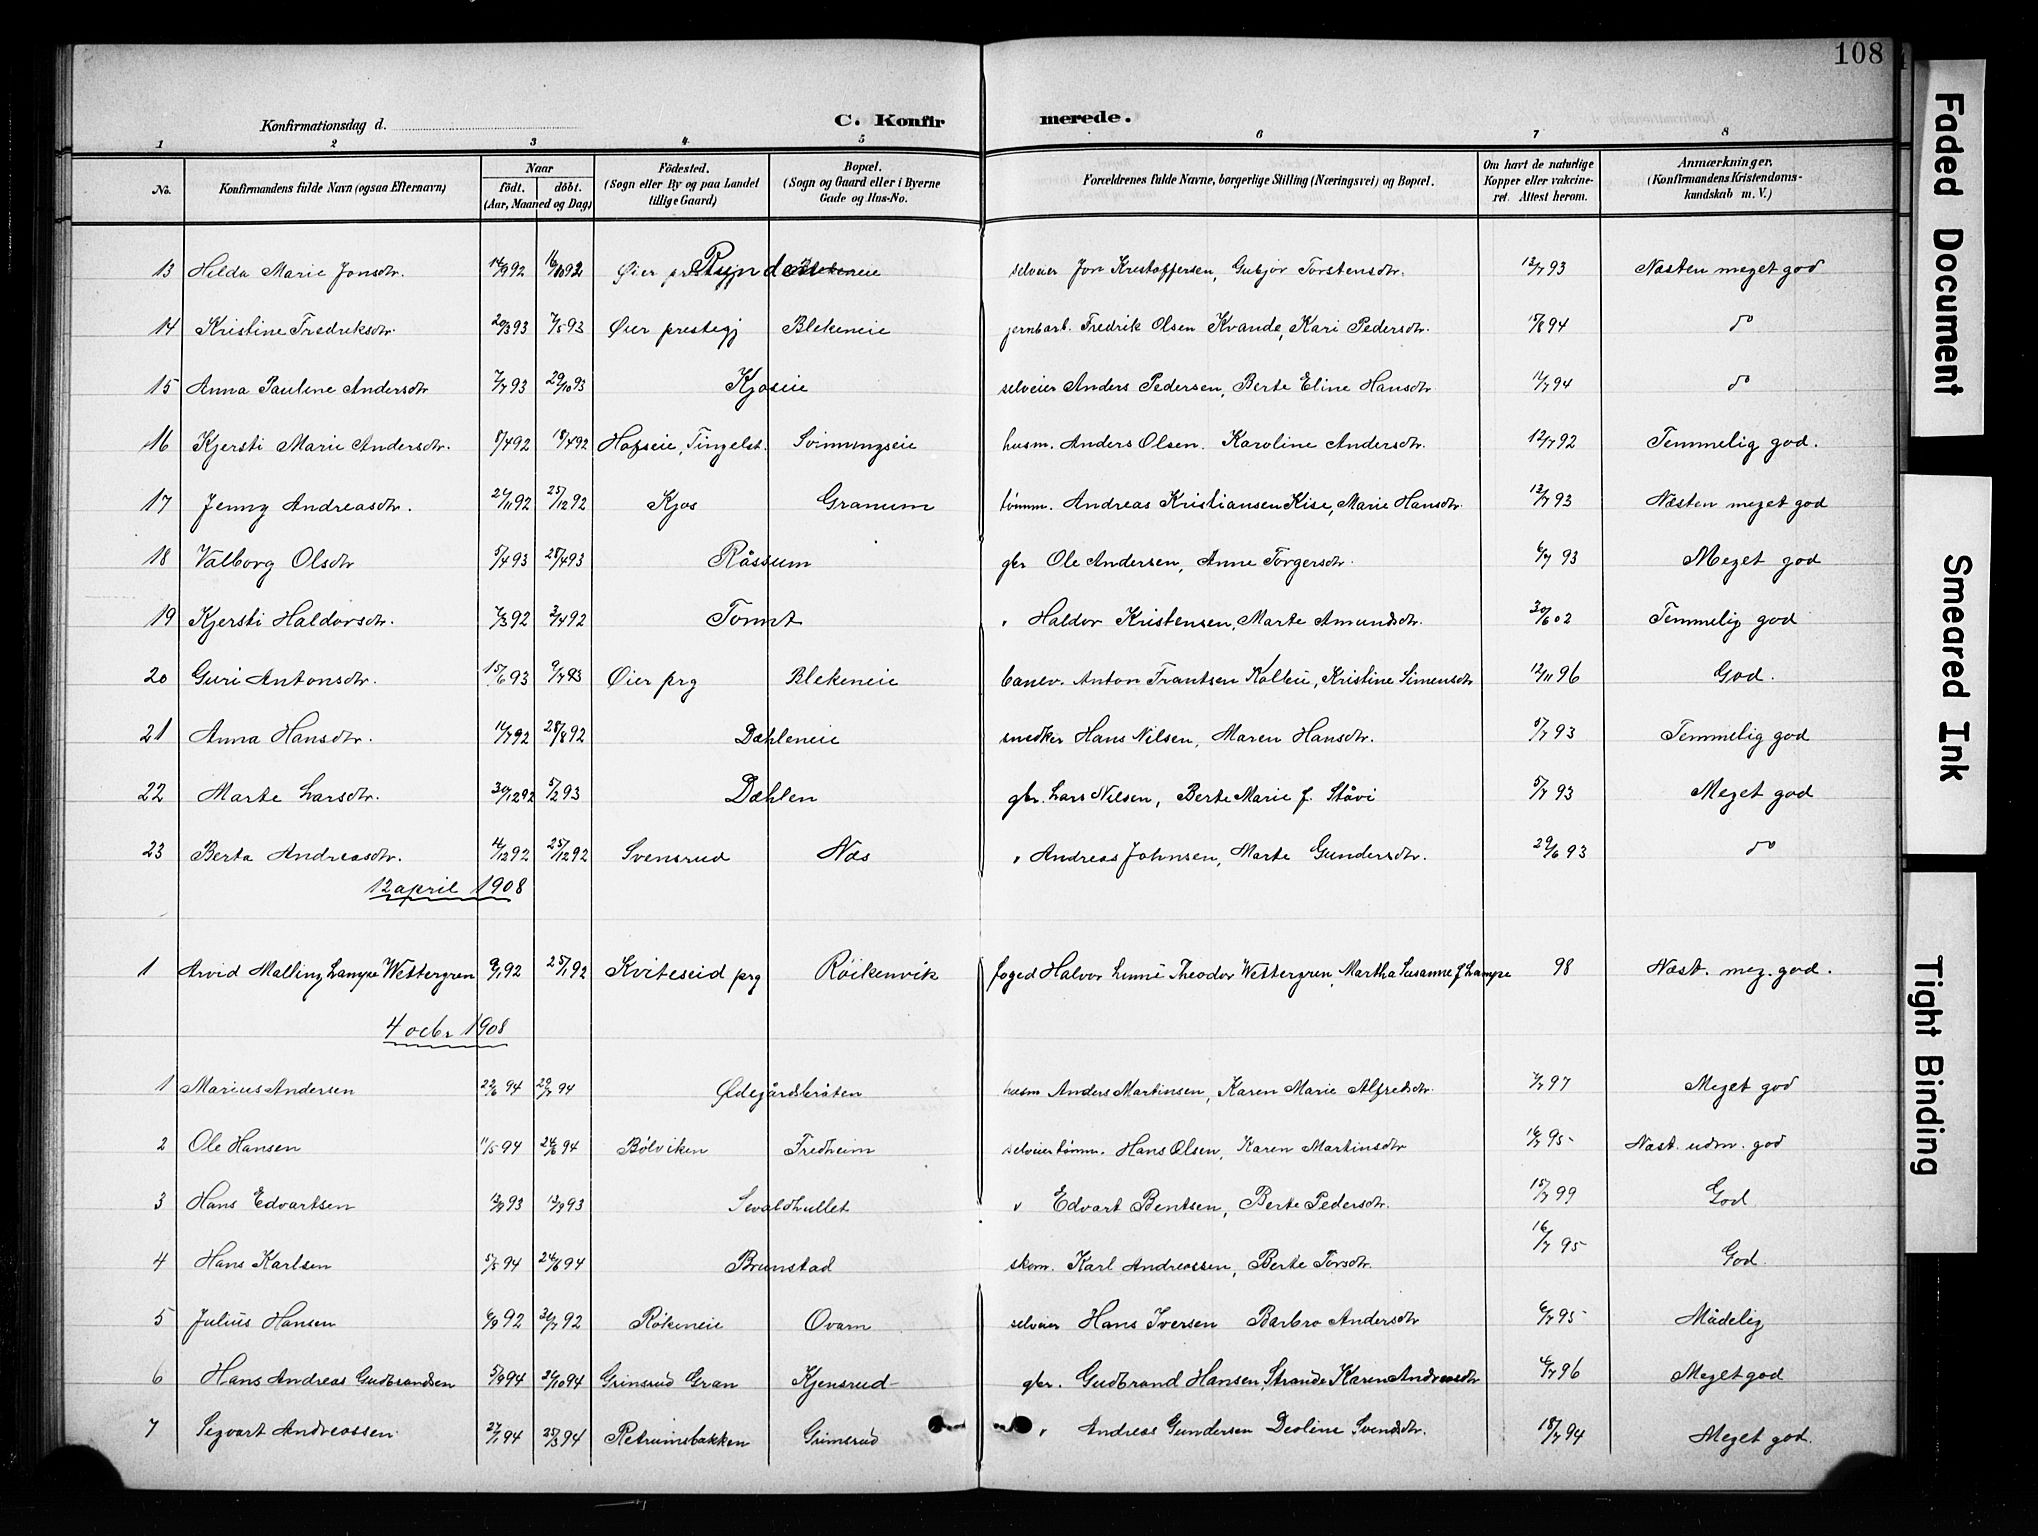 108
Konfirmationsdag d.
C. Konfirmerede.
1 2 3 4 5 6 7 8
No. Konfirmandens fulde Navn (ogsaa Efternavn) Naar födt. döbt. (Aar, Maaned og Dag) Födested. (Sogn eller By og paa Landet tillige Gaard) Bopæl. (Sogn og Gaard eller i Byerne Gade og Hus-No. Forældrenes fulde Navne, borgerlige Stilling (Næringsvei) og Bopæl. Om havt de naturlige Kopper eller vakcineret. Attest herom. Anmærkninger. (Konfirmandens Kristendomskundskab m. V.)
13 Hilda Marie Jonsdtr. 14/9 92 16/10 92 Øier Rynden Blekeneie selveier Jon Kristoffersen, Gubjør Torstensdtr. 12/7 93 Næsten meget god
14 Kristine Fredriksdtr. 20/3 93 7/5 93 Øier prestegj Blekeneie jernbarb. Fredrik Olsen Kvande, Kari Pedersdtr. 15/8 94 do
15 Anna Pauline Andersdtr 7/7 93 29/10 93 Kjoseie selveier Anders Pedersen, Berte Eline Hansdtr 11/7 94 do
16 Kjersti Marie Andersdtr. 8/4 92 18/4 92 Hofseie, Tingelst. Svinningseie husm. Anders Olsen. Karoline Andersdtr. 12/7 92 Temmelig god.
17 Jenny Andreasdtr. 21/11 92 25/12 92 Kjos Granum tømm. Andreas Kristiansen Kise, Marie Hansdtr. 12/7 93 Næsten meget god
18 Valborg Olsdtr 5/4 93 28/4 93 Råssum gbr Ole Andersen, Anne Torgersdtr. 6/7 93 Meget god
19 Kjersti Haldorsdtr. 7/3 92 3/4 92 Tomt " Haldor Kristensen, Marte Amundsdtr. 30/6 02 Temmelig god
20 Guri Antonsdtr. 15/6 93 9/7 93 Øier prg Blekeneie banev. Anton Frantsen Kolleie, Kristine Simensdtr 12/11 96 God.
21 Anna Hansdtr. 11/7 92 28/8 92 Dæhleneie snedker Hans Nilsen, Maren Hansdtr. 5/7 93 Temmelig god
22 Marte Larsdtr. 30/12 92 5/2 93 Dæhlen gbr. Lars Nilsen, Berte Marie f. Ståvi 5/7 93 Meget god
23 Berta Andreasdtr. 4/12 92 25/12 92 Svensrud Næs " Andreas Johnsen, Marte Gundersdtr. 29/6 93 do
12 april 1908
1 Arvid Malling Lampe Wettergren 9/1 92 25/1 92 Kviteseid prg Röikenvik foged Halvor Linné Theodor Wettergren, Martha Susanne f Lampe 98 Næst. meg. god.
4 octr 1908
1 Marius Andersen 22/6 94 29/7 94 Ødegårdsbråten husm Anders Martinsen, Karen Marie Alfredsdtr. 7/7 97 Meget god
2 Ole Hansen 11/5 94 24/6 94 Bölviken Fredheim selveier tømm. Hans Olsen, Karen Martinsdtr 16/7 95 Næst. udm. god
3 Hans Edvartsen 93 93 Sevaldhullet " Edvart Bentsen, Berte Pedersdtr. 15/7 99 God.
4 Hans Karlsen 5/5 94 24/6 94 Brunstad skom. Karl Andreassen, Berte Torsdtr. 16/7 95 God.
5 Julius Hansen 6/9 92 92 Rökeneie Ovarn selveier Hans Iversen Barbro Andersdtr 6/7 95 Mådelig
6 Hans Andreas Gudbrandsen 5/9 94 94 Grinsrud Gran Kjensrud gbr. Gudbrand Hansen, Strande Karen Andreasdtr 96 Meget god
7 Sigvart Andreassen 27/1 94 25/3 94 Retrumsbakken Grimsrud " Andreas Gundersen Deoline Svendsdtr. 18/7 94 Meget god.
Faded Document
Smeared Ink
Tight Binding